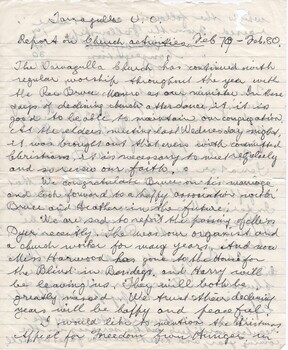 Tarnagulla U.C.
Report on Church activities, Feb 79 - Feb. 80.
The Tarnagulla Church has continued with
regular worship throughout the year with
the Rev Bruce as our minister. In these
days of declining church attendance it is
good to be able to maintain our congregation.
At the elders meeting last Wednesday night,
it was brought out that even with committed
Christians, it is necessary to meet regularly
and so renew our faith.
We congratulate Bruce on his marriage
and look forward to a happy association with
Bruce and Heather in the future.
We are sad to report the passing of
Dyer recently. She was our organist and
a church worker for many years, and now
Miss Harwood has gone to the Home for
the Blind in Bendigo, and Harry will
be leaving us. They will both be
greatly missed. We trust their declining
years will be happy and peaceful.
I would like to mention the Christmas
Appeal for Freedom From Hunger